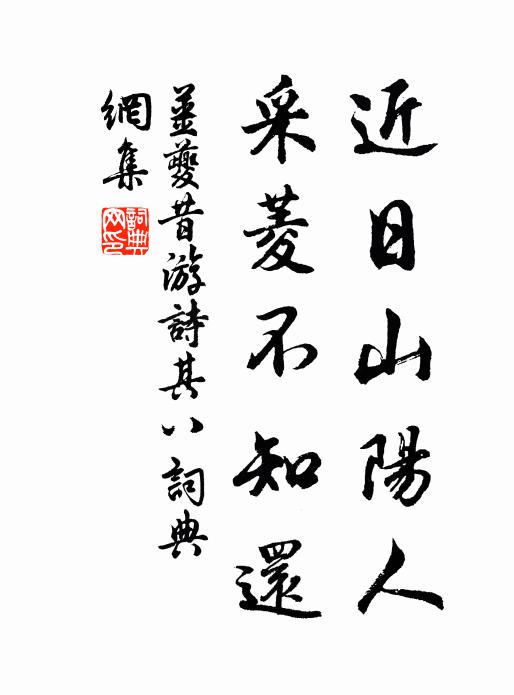 近日山陽人
采菱不知還
姜夔昔游詩其八詞典
網集
詞典
网印